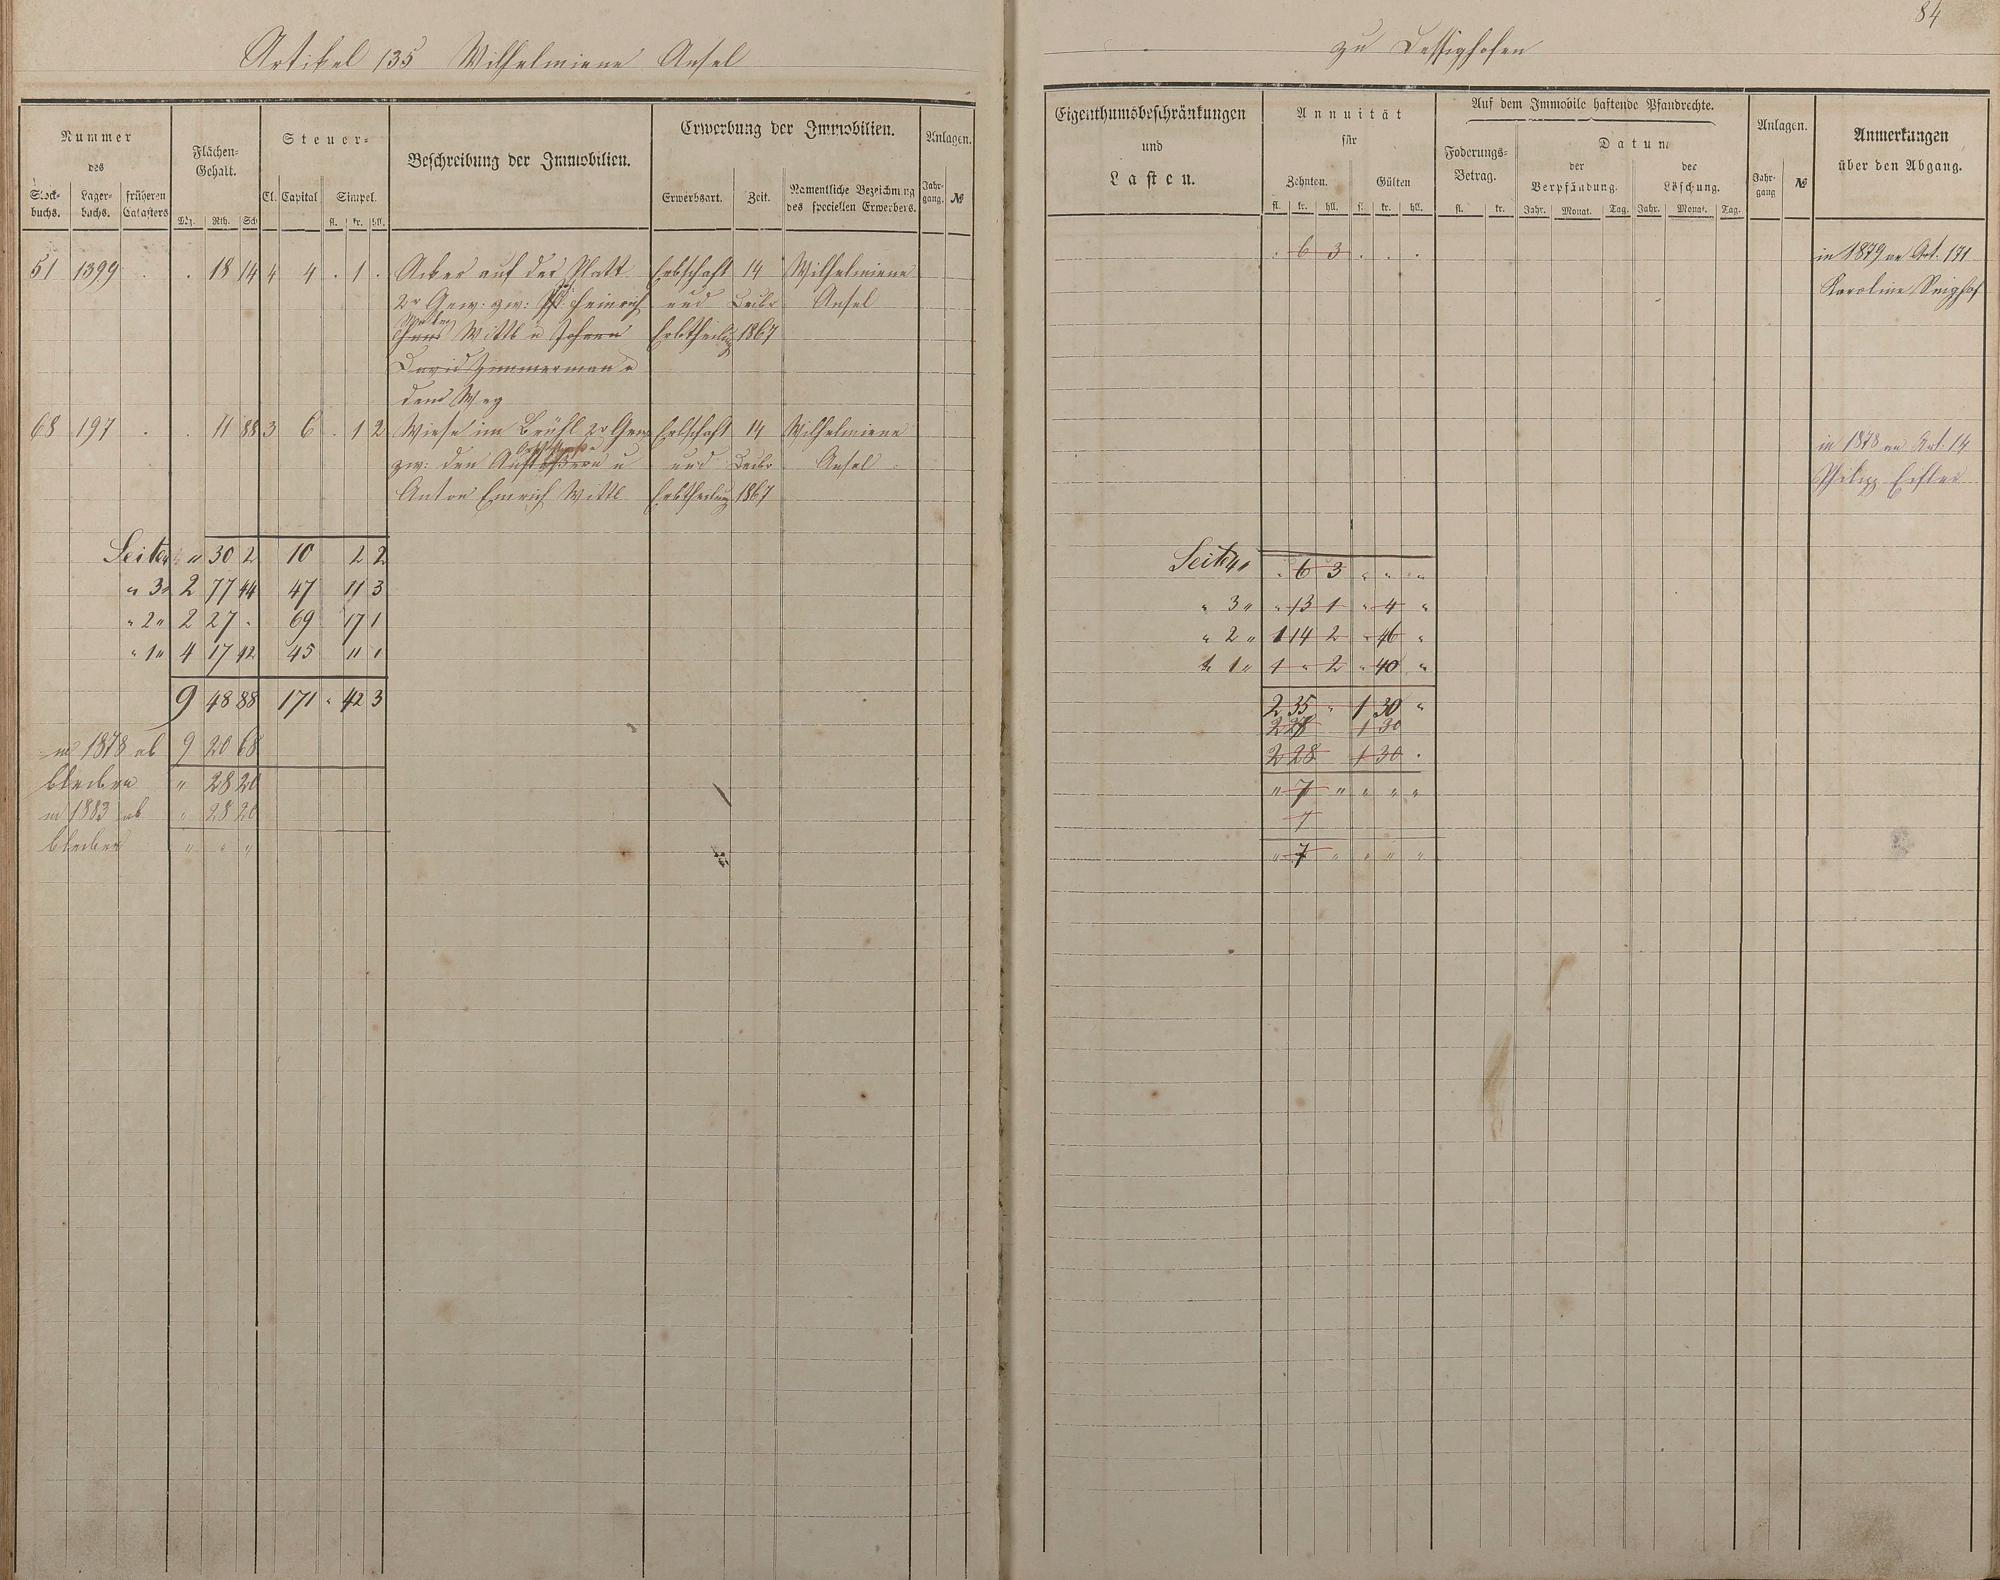 84
Artikel 135 Wilhelmiene Ansel
zu
Nummer
des
Stock-buchs.
Lager-buchs.
früheren Catasters
Flächen-Gehalt.
Mg. Rth. Sch
Steuer-
Cl. Capital Simpel.
fl. kr. hll.
Beschreibung der Immobilien.
Erwerbung der Immobilien.
Erwerbsart. Zeit. Namentliche Bezeichnung des speciellen Erwerbers.
Anlagen.
Jahr-gang. №
Eigenthumsbeschränkungen
und
Lasten.
Annuität
für
Zehnten. Gülten
fl. kr. hll. fl. kr. hll.
Auf dem Immobile haftende Pfandrechte.
Foderungs-Betrag.
fl. kr.
Datum
der Verpfändung.
der Löschung.
Jahr. Monat. Tag. Jahr. Monat. Tag.
Anlagen.
Jahr-gang №
Anmerkungen
über den Abgang.
51 1399 . . 18 14 4 4 . 1 . Acker auf der Platt Erbschaft 14 Wilhelmiene
2r Gew: zw: Heinrich und Dezbr Ansel
Wittb u Johann Erbtheilung 1867
David Zimmerman u
dem Weg
. 6 3 . . .
in 1879 an Art. 171
Karoline
68 197 . . 11 88 3 6 . 1 2 Wiese im Brühl 2r Gew Erbschaft 14 Wilhelmiene
zw: den Aufstößern u und Dezbr Ansel
Anton Emrich Wittb Erbtheilung 1867
in 1878 an Art. 14
Philipp
Seite 4 " 30 2 10 2 2
" 3 " 2 77 44 47 11 3
" 2 " 2 27 - 69 17 1
" 1 " 4 17 42 45 11 1
9 48 88 171 " 42 3
in 1878 ab 9 20 68
bleiben " 28 20
in 1883 ab " 28 20
bleiben " " "
Seite 4 " " 6 3 " " "
" 3 " " 13 1 " 4 "
" 2 " 1 14 2 " 46 "
" 1 " 1 " 2 " 40 "
2 35 " 1 30 "
2 28 1 30
2 28 1 30 .
" 7 " " " "
7
" 7 " " " "